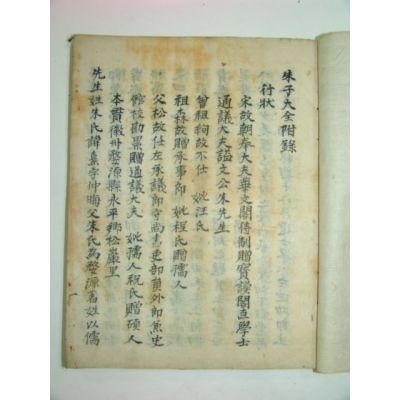 朱子大全附錄
行狀
宋故朝奉大夫華文閣待制贈寶謨閣直學士
通議大夫諡文公朱先生
曾祖絢故不仕 妣汪氏
祖森故贈承事郎 妣程氏贈孺人
父松故任左承議郎守尚書吏部員外郎兼史
館校勘累贈通議大夫 妣孺人祝氏贈碩人
本貫徽州婺源縣永平鄉松巖里
先生姓朱氏諱熹字仲晦父朱氏為婺源著姓以儒